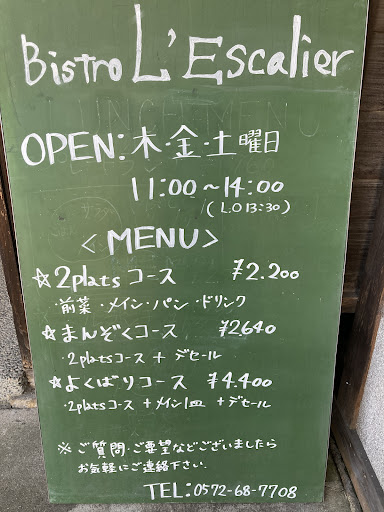 Bistro L'Escalier
OPEN: 木・金・土曜日
11:00～14:00
(L.O 13:30)
<MENU>
☆2platsコース ¥2.200
・前菜・メイン・パン・ドリンク
☆まんぞくコース ¥2640
・2platsコース + デセール
☆よくばりコース ¥4.400
・2platsコース +メイン1皿 +デセール
※ご質問・ご要望などございましたら
お気軽にご連絡下さい.
TEL:0572-68-7708